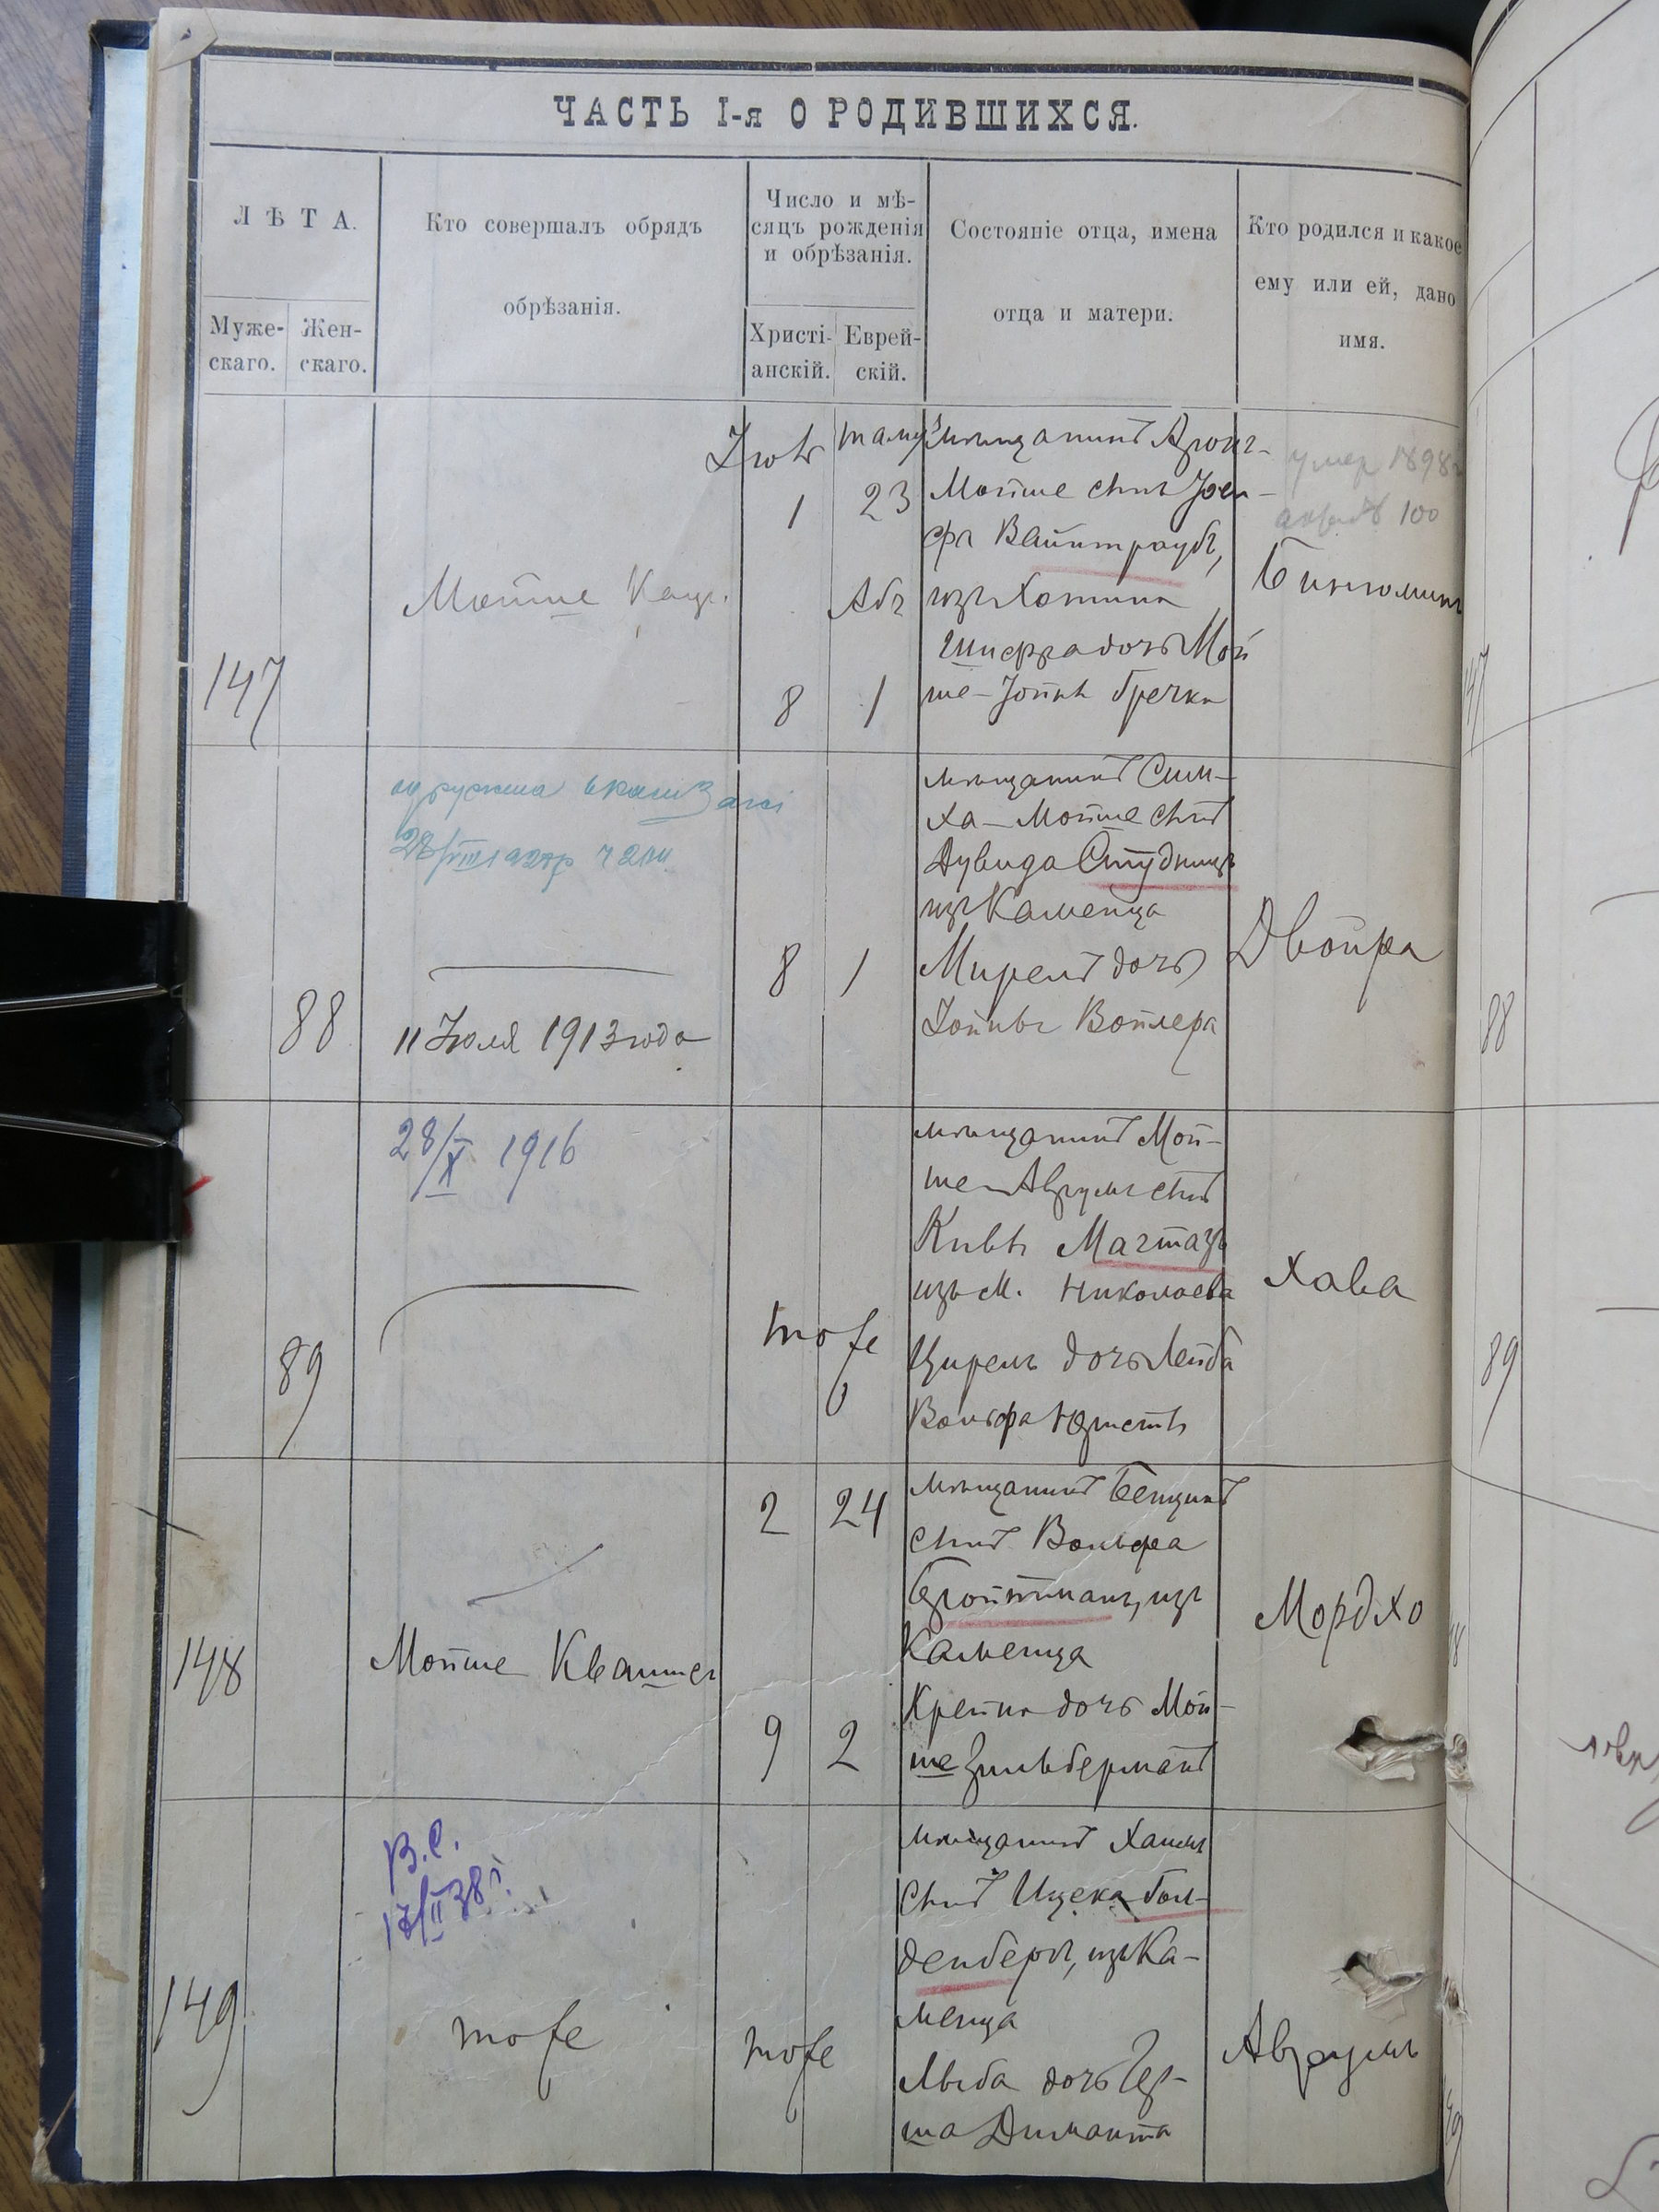 ЧАСТЬ I-я О РОДИВШИХСЯ.
ЛѢТА.
Муже-
скаго.
Жен-
скаго.
Кто совершалъ обрядъ
обрѣзанія.
Число и мѣ-
сяцъ рожденія
и обрѣзанія.
Христі-
анскій.
Еврей-
скій.
Состояніе отца, имена
отца и матери.
Кто родился и какое
ему или ей, дано
имя.
147
Мойше Кац.
Іюль
1
8
тамуз
23
Абъ
1
мѣщанинъ Аронъ-
Мойше сынъ Іосе-
фа Вайнтраубъ,
изъ Хотина
Шифра дочь Мой
ше-Іойны Гречка
умер 1898
100
Биніоминъ
88
28/VIII
11 Іюля 1913 года
8
1
мѣщанинъ Сим-
ха-Мойше сынъ
Дувида Студницъ
изъ Каменца
Мирель дочь
Іойны Войлера
Двойра
89
28/X 1916
тоже
мѣщанинъ Мой-
ше-Аврумъ сынъ
Кивы
изъ м. Николаева
Цирель дочь Лейба
Вольфа
Хава
148
Мойше
2
9
24
2
мѣщанинъ Бенціонъ
сынъ Вольфа
Бройтманъ, изъ
Каменца
Крейна дочь Мой-
ше Зильберманъ
Мордхо
149
В.С.
17/II 38 г.
тоже
тоже
мѣщанинъ Хаимъ
сынъ Ицека Гол-
денберъ, изъ Ка-
менца
Лыба дочь Гер-
ша Диманта
Аврумъ
147
88
89